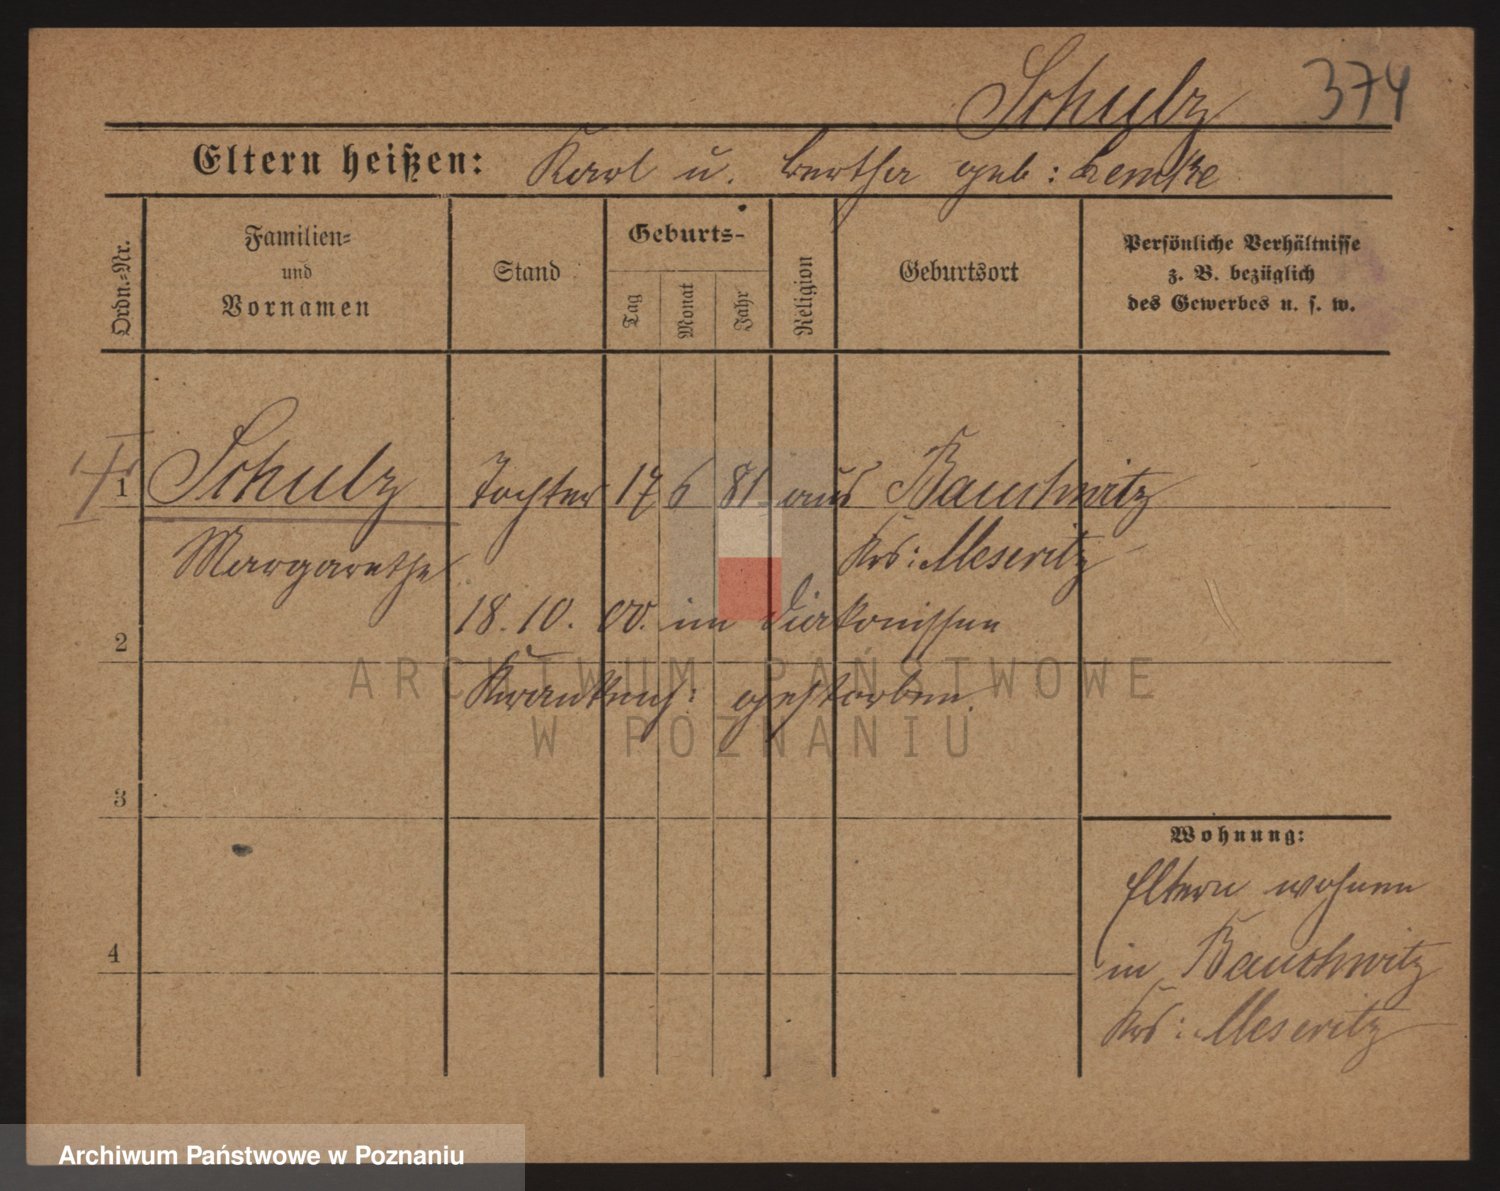 Schulz 374
Eltern heißen: Karl u. Bertha geb: Lemke
Ordn.-Nr.
Familien-
und
Vornamen
Stand
Geburts-
Tag
Monat
Jahr
Religion
Geburtsort
Persönliche Verhältnisse
z. B. bezüglich
des Gewerbes u. s. w.
1 Schulz Tochter 17 6 81. aus Bauchwitz
Margarethe Krs: Meseritz
18. 10. 00. im Diakonissen
2
Krankenh: gestorben.
ARCHIWUM PAŃSTWOWE
W POZNANIU
3
Wohnung:
Eltern wohnen
4 in Bauchwitz
Krs: Meseritz
Archiwum Państwowe w Poznaniu